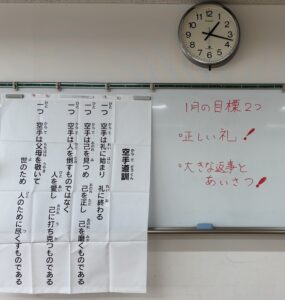 空手道訓
一つ 空手は礼に始まり 礼に終わる
一つ 空手は己を見つめ 己を正し 己を磨くものである
一つ 空手は人を倒すものではなく
人を愛し 己に打ち克つものである
一つ 空手は父母を敬いて
世のため 人のために尽くすものである
1月の目標2つ
・正しい礼!
・大きな返事と
あいさつ!